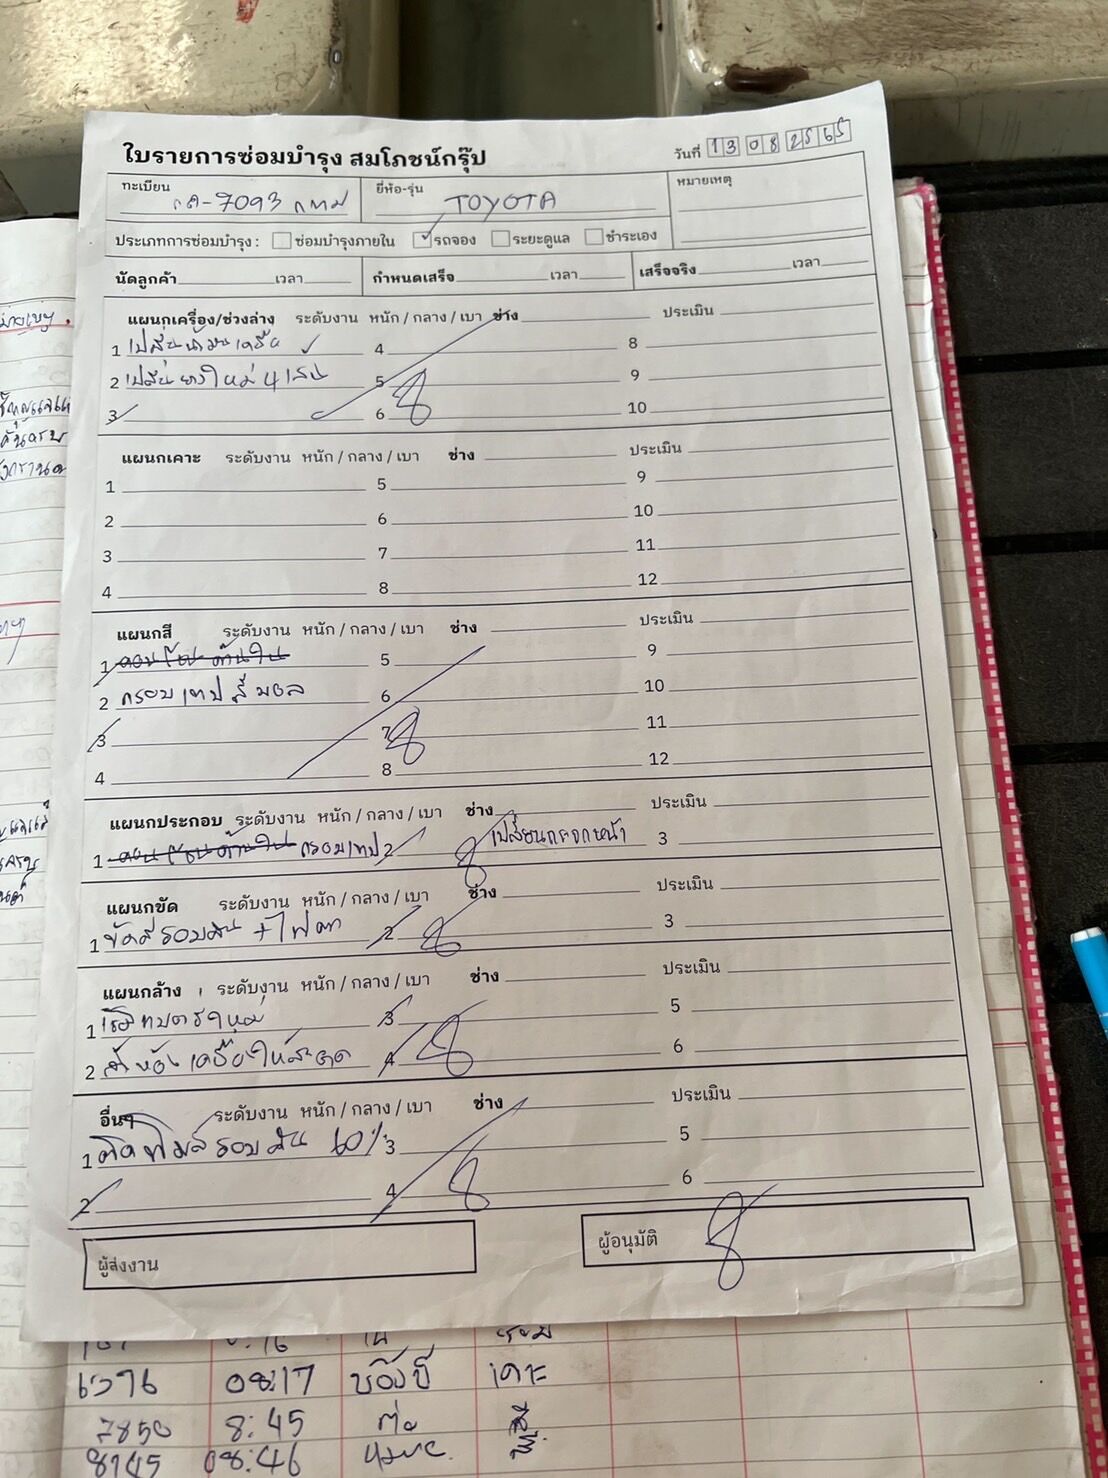 ใบรายการซ่อมบำรุง สมโภชน์กรุ๊ป
วันที่ 13 08 2565
ทะเบียน -7093 กทม
ยี่ห้อ-รุ่น TOYOTA
หมายเหตุ
ประเภทการซ่อมบำรุง : ซ่อมบำรุงภายใน รถจอง ระยะดูแล ชำระเอง
นัดลูกค้า เวลา กำหนดเสร็จ เวลา เสร็จจริง เวลา
แผนกเครื่อง/ช่วงล่าง ระดับงาน หนัก / กลาง / เบา ช่าง ประเมิน
1 เปลี่ยนน้ำมันเครื่อง 4 8
2 เปลี่ยนยางใหม่ 4 เส้น 5 9
3 6 10
แผนกเคาะ ระดับงาน หนัก / กลาง / เบา ช่าง ประเมิน
1 5 9
2 6 10
3 7 11
4 8 12
แผนกสี ระดับงาน หนัก / กลาง / เบา ช่าง ประเมิน
1 5 9
2 กรอบเทปสี 6 10
3 7 11
4 8 12
แผนกประกอบ ระดับงาน หนัก / กลาง / เบา ช่าง ประเมิน
1 กรอบเทป 2 เปลี่ยนกระจกหน้า 3
แผนกขัด ระดับงาน หนัก / กลาง / เบา ช่าง ประเมิน
1 ขัดสีรอบคัน + ไฟตา 2 3
แผนกล้าง ระดับงาน หนัก / กลาง / เบา ช่าง ประเมิน
1 3 5
2 ล้างห้องเครื่องให้สะอาด 4 6
อื่นๆ ระดับงาน หนัก / กลาง / เบา ช่าง ประเมิน
1 ติดฟิมล์รอบคัน 60% 3 5
2 4 6
ผู้ส่งงาน
ผู้อนุมัติ
08:17 เคาะ
7850 8:45 ต่อ สี
8145 08:46